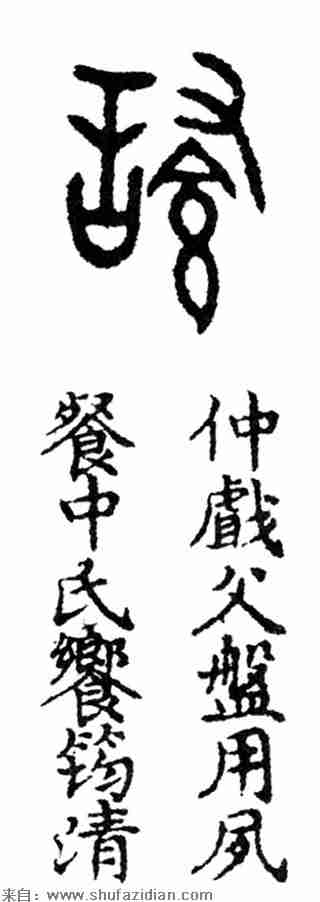 仲戲父盤用夙
餐中氏饗筠清
来自：www.shufazidian.com